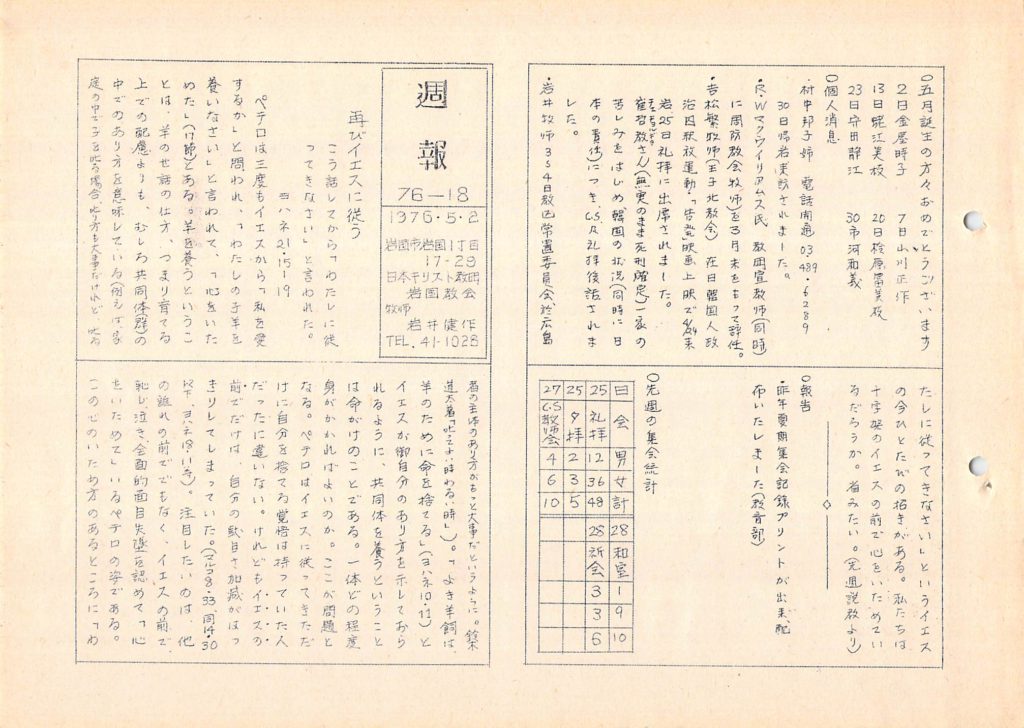 週報
76-18
1976.5.2
岩国市岩国1丁目
17-29
日本キリスト教団
岩国教会
牧師
岩井健作
TEL.41-1028
再びイエスに従う
こう話してから「わたしに従
ってきなさい」と言われた。
ヨハネ21・15-19
ペテロは三度もイエスから「私を愛
するか」と問われ、「わたしの子羊を
養いなさい」と言われて、「心をいた
めた」(17節)とある。羊を養うというこ
とは、羊の世話の仕方、つまり育てる
上での配慮よりも、むしろ共同体(群)の
中でのあり方を意味している(例えば、家
庭の中で子を叱る場合、叱り方も大事だけれど、叱る
者の主体のあり方がもっと大事だというように。鈴木
道太著「叱るよい時わるい時」)。「よき羊飼は、
羊のために命を捨てる」(ヨハネ10・11)と
イエスが御自分のあり方を示しておら
れるように、共同体を養うということ
は命がけのことである。一体どの程度
身がかかればよいのか。ここが問題と
なる。ペテロはイエスに従ってきただ
けに自分を捨てる覚悟は持っていた人
だったに違いない。けれどもイエスの
前でだけは、自分の駄目さ加減がはっ
きりしてしまっていた。(マルコ8・33、同14・30
以下、ヨハネ18・11等)。注目したいのは、他
の誰れの前ででもなく、イエスの前で、
恥じ泣き、全面的面目失墜を認めて「心
をいためて」いるペテロの姿である。
この心のいため方のあるところに「わ
たしに従ってきなさい」というイエス
の今ひとたびの招きがある。私たちは
十字架のイエスの前で心をいためてい
るだろうか。省みたい。(先週説教より)
○報告
・昨年夏期集会記録プリントが出来、配
布いたしました(教育部)
○先週の集会統計
日 会 男 女 計
25 礼拝 12 36 48
25 夕拝 2 3 5
27 C.S教師会 4 6 10
28 和室 1 9 10
28 祈会 3 3 6
○五月誕生の方々おめでとうございます
2日金屋時子 7日山川正作
13日 江美枝 20日桧原富美枝
23日守田静江 30日市河和義
○個人消息
・村中邦子姉 電話開通 03 489・6289
30日帰岩来訪されました。
・R・Wマクウイリアムス氏 教団宣教師(同時
に周防教会牧師)を3月末をもって辞任。
・吉松繁牧師(王子北教会) 在日韓国人政
治囚釈放運動・「告発」映画上映で 来
岩25日礼拝に出席されました。
崔 さん(無実のまま死刑確定)一家の
苦しみをはじめ韓国の状況(同時に日
本の責任)につき、C.S、礼拝後話されま
した。
・岩井牧師 3 4日教区常置委員会、於広島